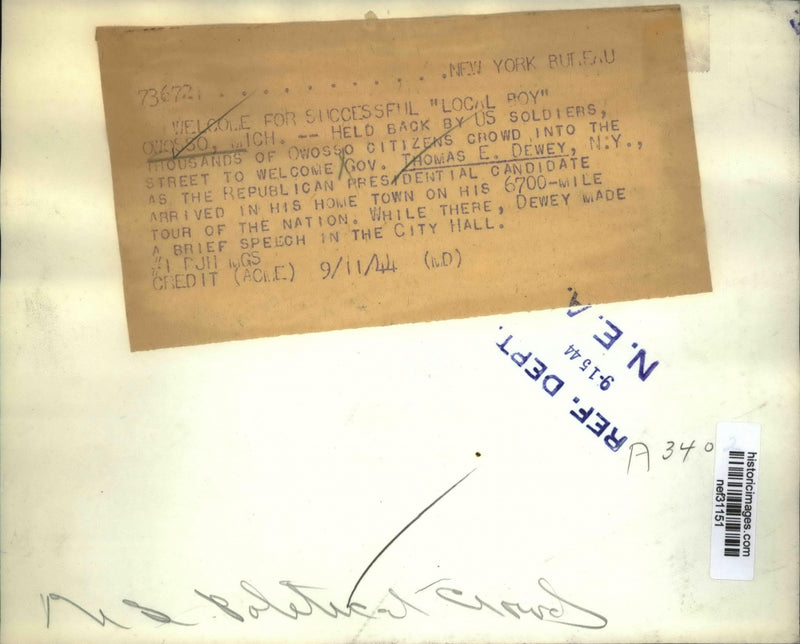 736721 . . . . . . . . . . . . NEW YORK BUREAU
WELCOME FOR SUCCESSFUL "LOCAL BOY"
OWOSSO, MICH. -- HELD BACK BY US SOLDIERS,
THOUSANDS OF OWOSSO CITIZENS CROWD INTO THE
STREET TO WELCOME GOV. THOMAS E. DEWEY, N.Y.,
AS THE REPUBLICAN PRESIDENTIAL CANDIDATE
ARRIVED IN HIS HOME TOWN ON HIS 6700-MILE
TOUR OF THE NATION. WHILE THERE, DEWEY MADE
A BRIEF SPEECH IN THE CITY HALL.
#1 PJH MGS
CREDIT (ACME) 9/11/44 (MD)
REF. DEPT.
9-15 44
N. E. A.
A 340
historicimages.com
nef31151
Political Crowd